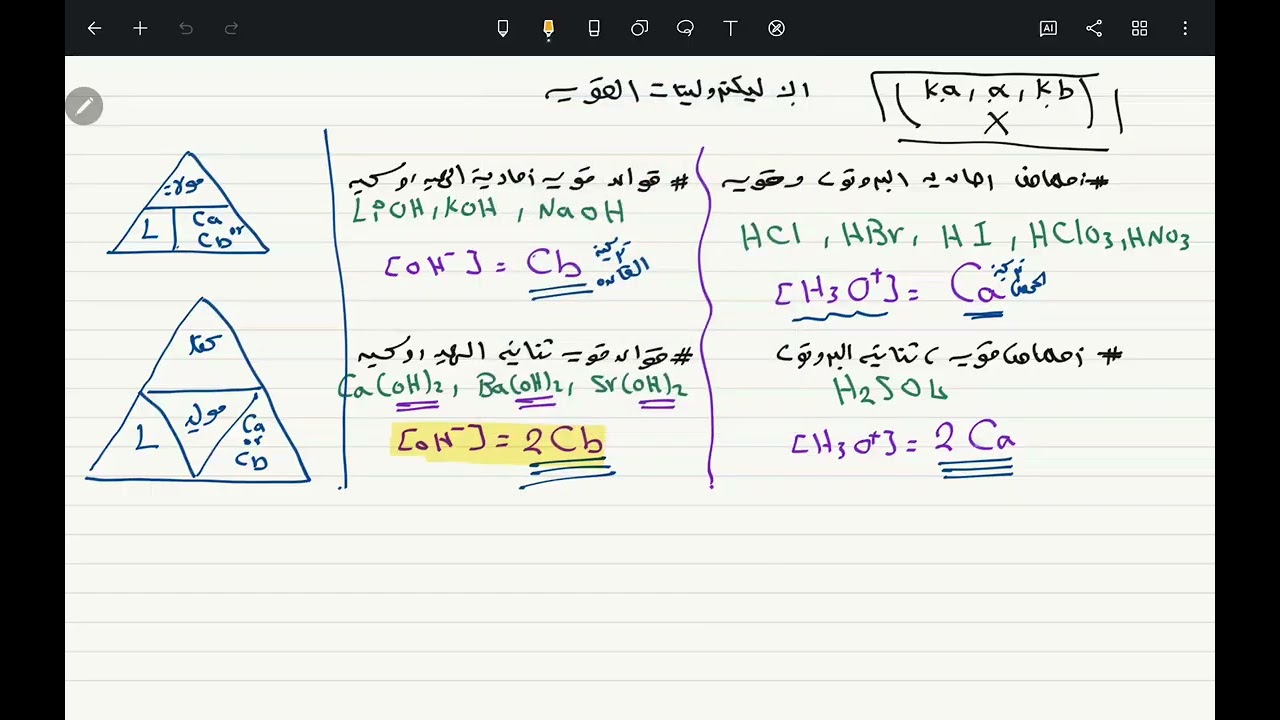 الاليكتروليتات القويه
(ka, α, kb)
X
# أحماض احاديه البروتون وقويه
HCl, HBr, HI, HClO3, HNO3
[H3O+] = Ca تركيز الحمض
# أحماض قويه ثنائيه البروتون
H2SO4
[H3O+] = 2Ca
# قواعد قويه أحادية الهيدروكسيد
LiOH, KOH, NaOH
[OH-] = Cb تركيز القاعده
# قواعد قويه ثنائيه الهيدروكسيد
Ca(OH)2, Ba(OH)2, Sr(OH)2
[OH-] = 2Cb
مولات
L
Ca or Cb
كتلة
L
مولية
Ca
or
Cb
AI
T